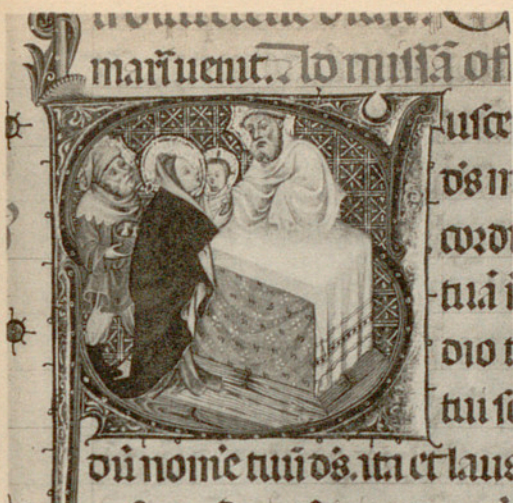 martiuenit. Ad missā off
Susce
ds̄ m
cordi
tuā i
dio t
tui se
dū nomē tuū ds̄. ita et laus